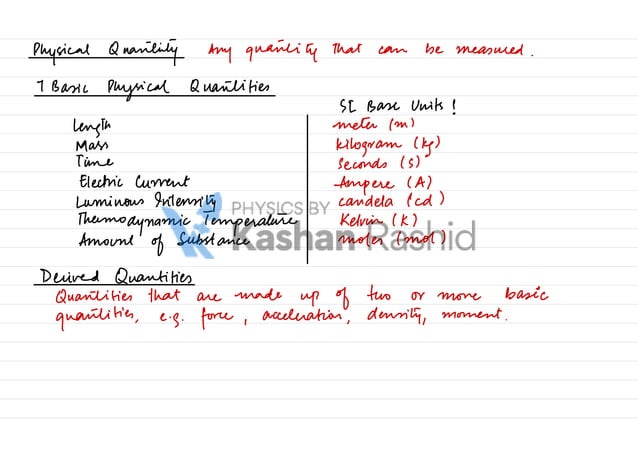 Physical Quantity Any quantity that can be measured.
7 Basic Physical Quantities
SI Base Units!
Length meter (m)
Mass kilogram (kg)
Time Seconds (s)
Electric Current Ampere (A)
Luminous Intensity candela (cd)
Thermodynamic Temperature Kelvin (K)
Amount of Substance moles (mol)
PHYSICS BY
Kashan Rashid
Derived Quantities
Quantities that are made up of two or more basic
quantities, e.g. force, acceleration, density, moment.